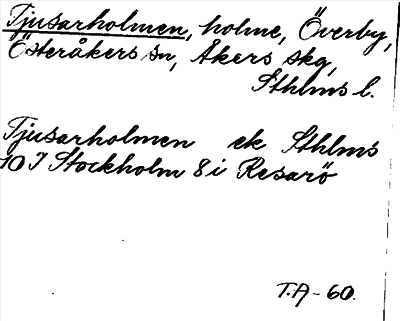 Tjusarholmen, holme, Överby,
Österåkers sn, Åkers skg,
Sthlms l.
Tjusarholmen ek Sthlms
10 I Stockholm 8 i Resarö
T.A-60.